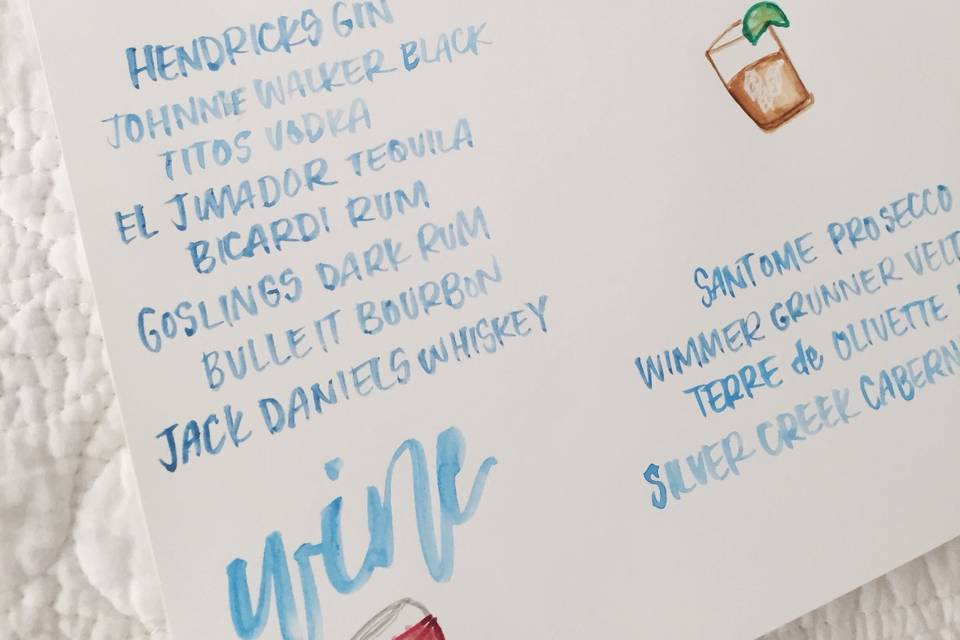 HENDRICKS GIN
JOHNNIE WALKER BLACK
TITOS VODKA
EL JIMADOR TEQUILA
BICARDI RUM
GOSLINGS DARK RUM
BULLEIT BOURBON
JACK DANIELS WHISKEY
wine
SANTOME PROSECCO
WIMMER GRUNNER VELT
TERRE de OLIVETTE
SILVER CREEK CABERN